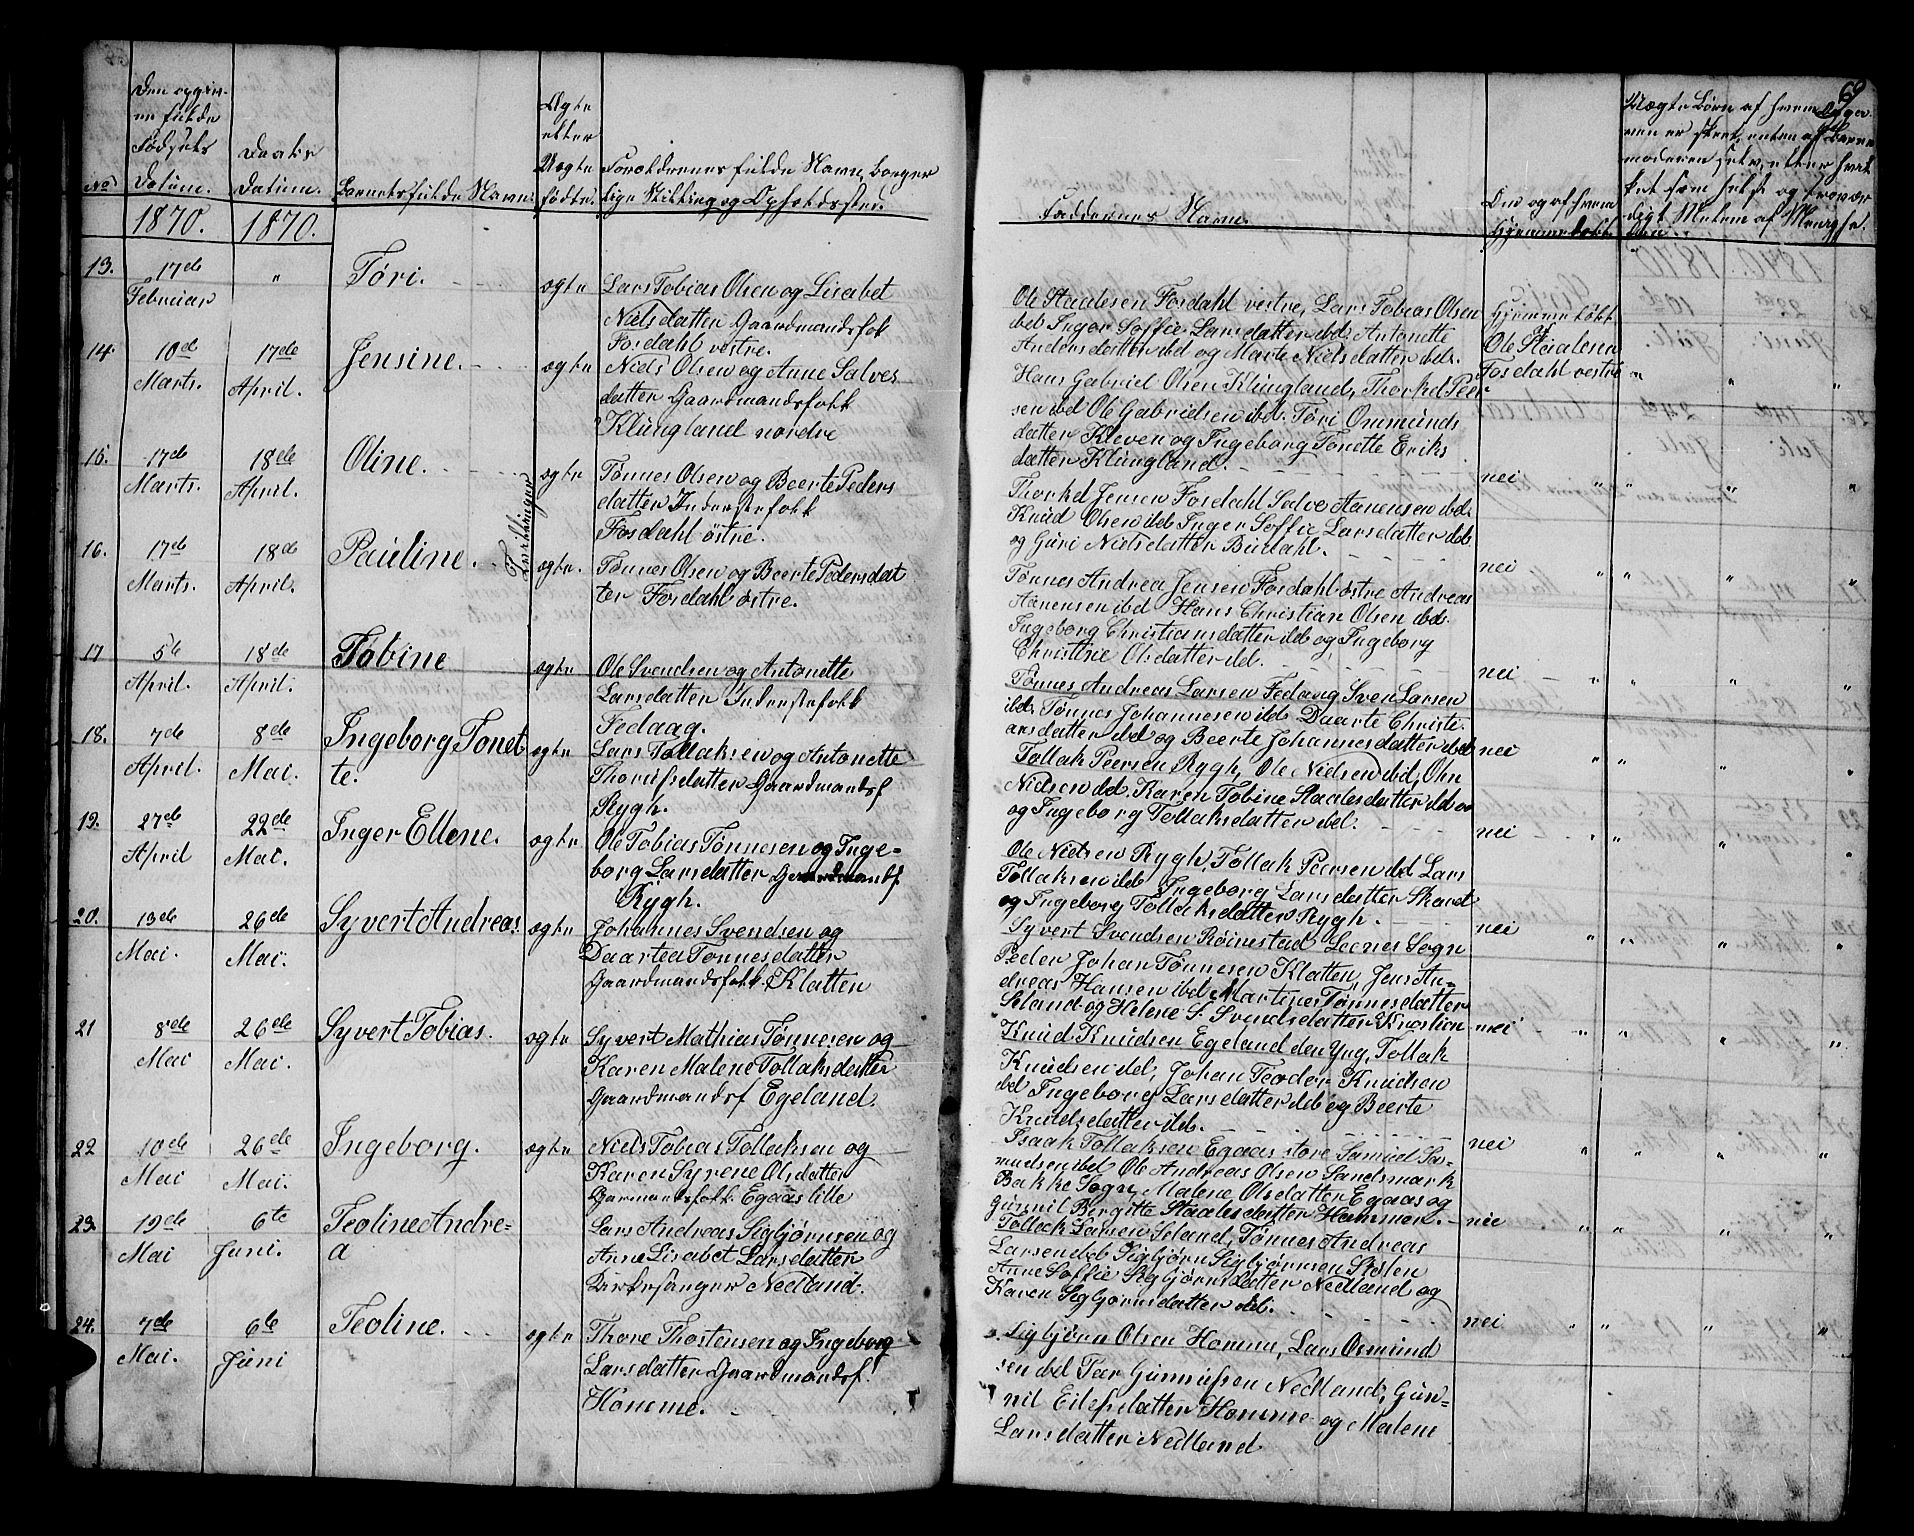 69
No
Den opgiv-
ne fulde
Fødsels
Datum.
Daabs
Datum.
Barnets fulde Navn.
Ægte
eller
Uægte
fødte.
Forældrenes fulde Navn, borger
lige Stilling og Opholdssted.
Faddernes Navn.
Om og af hvem
Hjemmedøbt
Uægte Børn af hvem Opgiv
nen er skeet, enten af Barne
moderen selv, eller hvil
ket som helst og trovær
digt Melem af Menighe.
den.
1870. 1870.
13. 17de
Februar
"
Tøri.
ægte
Lars Tobias Olsen og Lisabet
Nielsdatter Gaardmandsfok
Fosdahl vestre.
Ole Staalesen Fosdahl vestre, Lars Tobias Olsen
ibd Inger Soffie Larsdatter ibd Antonette
Andersdatter ibd og Marte Nielsdatter ibd.
Hjemme døbt
af
Ole Staalesen
Fosdahl vestre
14. 10d
Marts.
17de
April.
Jensine.
ægte
Niels Olsen og Anne Salves
datter Gaardmandsfolk
Klungland nordre
Hans Gabriel Olsen Klungland, Thorkel Peer
sen ibd Ole Gabrielsen ibd. Tøri Ommunds
datter Kleven og Ingeborg Tonette Eriks
datter Klungland.
nei
15. 17de
Marts.
18de
April.
Oline.
Tvillinger
ægte
Tønnes Olsen og Beerte Peders
datter Inderstefolk
Fosdahl østre.
Thorkel Jensen Fosdahl Salve Aanensen ibd.
Knud Olsen ibd Inger Soffie Larsdatter ibd
og Guri Nielsdatter Büdahl.
nei
16. 17de
Marts.
18d
April.
Pauline.
ægte.
Tønnes Olsen og Beerte Pedersdat
ter Fosdahl østre.
Tønnes Andrea Jensen Fosdahl østre Andreas
Aanensen ibd Hans Christian Olsen ibd.
Ingeborg Christiansdatter ibd og Ingeborg
Christine Olsdatter ibd.
nei
17 5te
April.
18de
April.
Tobine
ægte
Ole Svendsen og Antonette
Larsdatter Inderstefolk
Fedaag.
Tønnes Andreas Larsen Fedaag Sven Larsen
ibd. Tønnes Johannesen ibd. Daarte Christi
ansdatter ibd og Beerte Johannesdatter ibd
nei
18. 7de
April.
8de
Mai.
Ingeborg Tonet
te.
ægte
Lars Tollaksen og Antonette
Thorufsdatter Gaardmandsf
Rygh.
Tollak Peersen Rygh, Ole Nielsen ibd, Ohn
Nielsen ibd. Karen Tobine Staalesdatter ibd
og Ingeborg Tollaksdatter ibd.
nei
19. 27de
April
22de
Mai.
Inger Ellene.
ægte
Ole Tobias Tønnesen og Inge-
borg Larsdatter Gaardmandsf
Rygh.
Ole Nielsen Rygh, Tollak Peersen ibd Lars
Tollaksen ibd Ingeborg Larsdatter Skand
og Ingeborg Tollaksdatter Rygh.
nei
20. 13de
Mai.
26de
Mai.
Syvert Andreas.
ægte
Johannes Svendsen og
Daartea Tønnesdatter
Gaardmandsfolk. Klatten
Syvert Svendsen Røinestad Leenes Sogn
Peder Johan Tønnesen Klatten, Jens An-
dreas Hansen ibd Martine Tønnesdatter
Seland og Helene S. Svendsdatter Knotlion
nei
21 8de
Mai
26de
Mai.
Syvert Tobias.
ægte
Syvert Mathias Tønnesen og
Karen Malene Tollaksdatter
Gaardmandsf Egeland.
Knud Knudsen Egeland den Yng, Tollak
Knudsen ibd, Johan Teodor Knudsen
ibd Ingeborg Larsdatter ibd og Beerte
Knudsdatter ibd.
nei
22 10de
Mai
26de
Mai.
Ingeborg.
ægte
Niels Tobias Tollaksen og
Karen Syrene Olsdatter
Garmandsfolk Egaas lille
Isaak Tollaksen Egaas store Samuel Sa-
muelsen ibd Ole Andreas Olsen Sandsmark
Bakke Sogn, Malene Olsdatter Egaas og
Gunnil Bergitte Staalesdatter Hammen.
nie
23. 19de
Mai
6te
Juni.
Teoline Andre=
a
Lars Andreas Sigbjørnsen og
Anne Lisabet Larsdatter
Nedland.
Tollak Larsen Seland, Tønnes Andreas
Larsen ibd Sigbjørn Sigbjørnsen Stølen
Anne Soffie Sigbjørnsdatter Nedland og
Karen Sigbjørnsdatter ibd.
nei
24. 7de
Mai.
6te
Juni
Teoline.
ægte
Thore Thostensen og Ingeborg
Larsdatter Gaardmandsf.
Homme.
Sigbjørn Olsen Homme, Lars Osmund
sen ibd Peer Gunnufsen Nedland, Gun-
nil Eilefsdatter Homme og Malene
Larsdatter Nedland